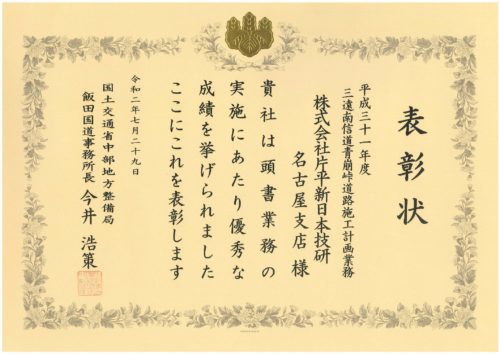 表彰状
平成三十一年度
三遠南信道青崩峠道路施工計画業務
株式会社片平新日本技研
名古屋支店 様
貴社は頭書業務の
実施にあたり優秀な
成績を挙げられました
ここにこれを表彰します
令和二年七月二十九日
国土交通省中部地方整備局
飯田国道事務所長 今井 浩策